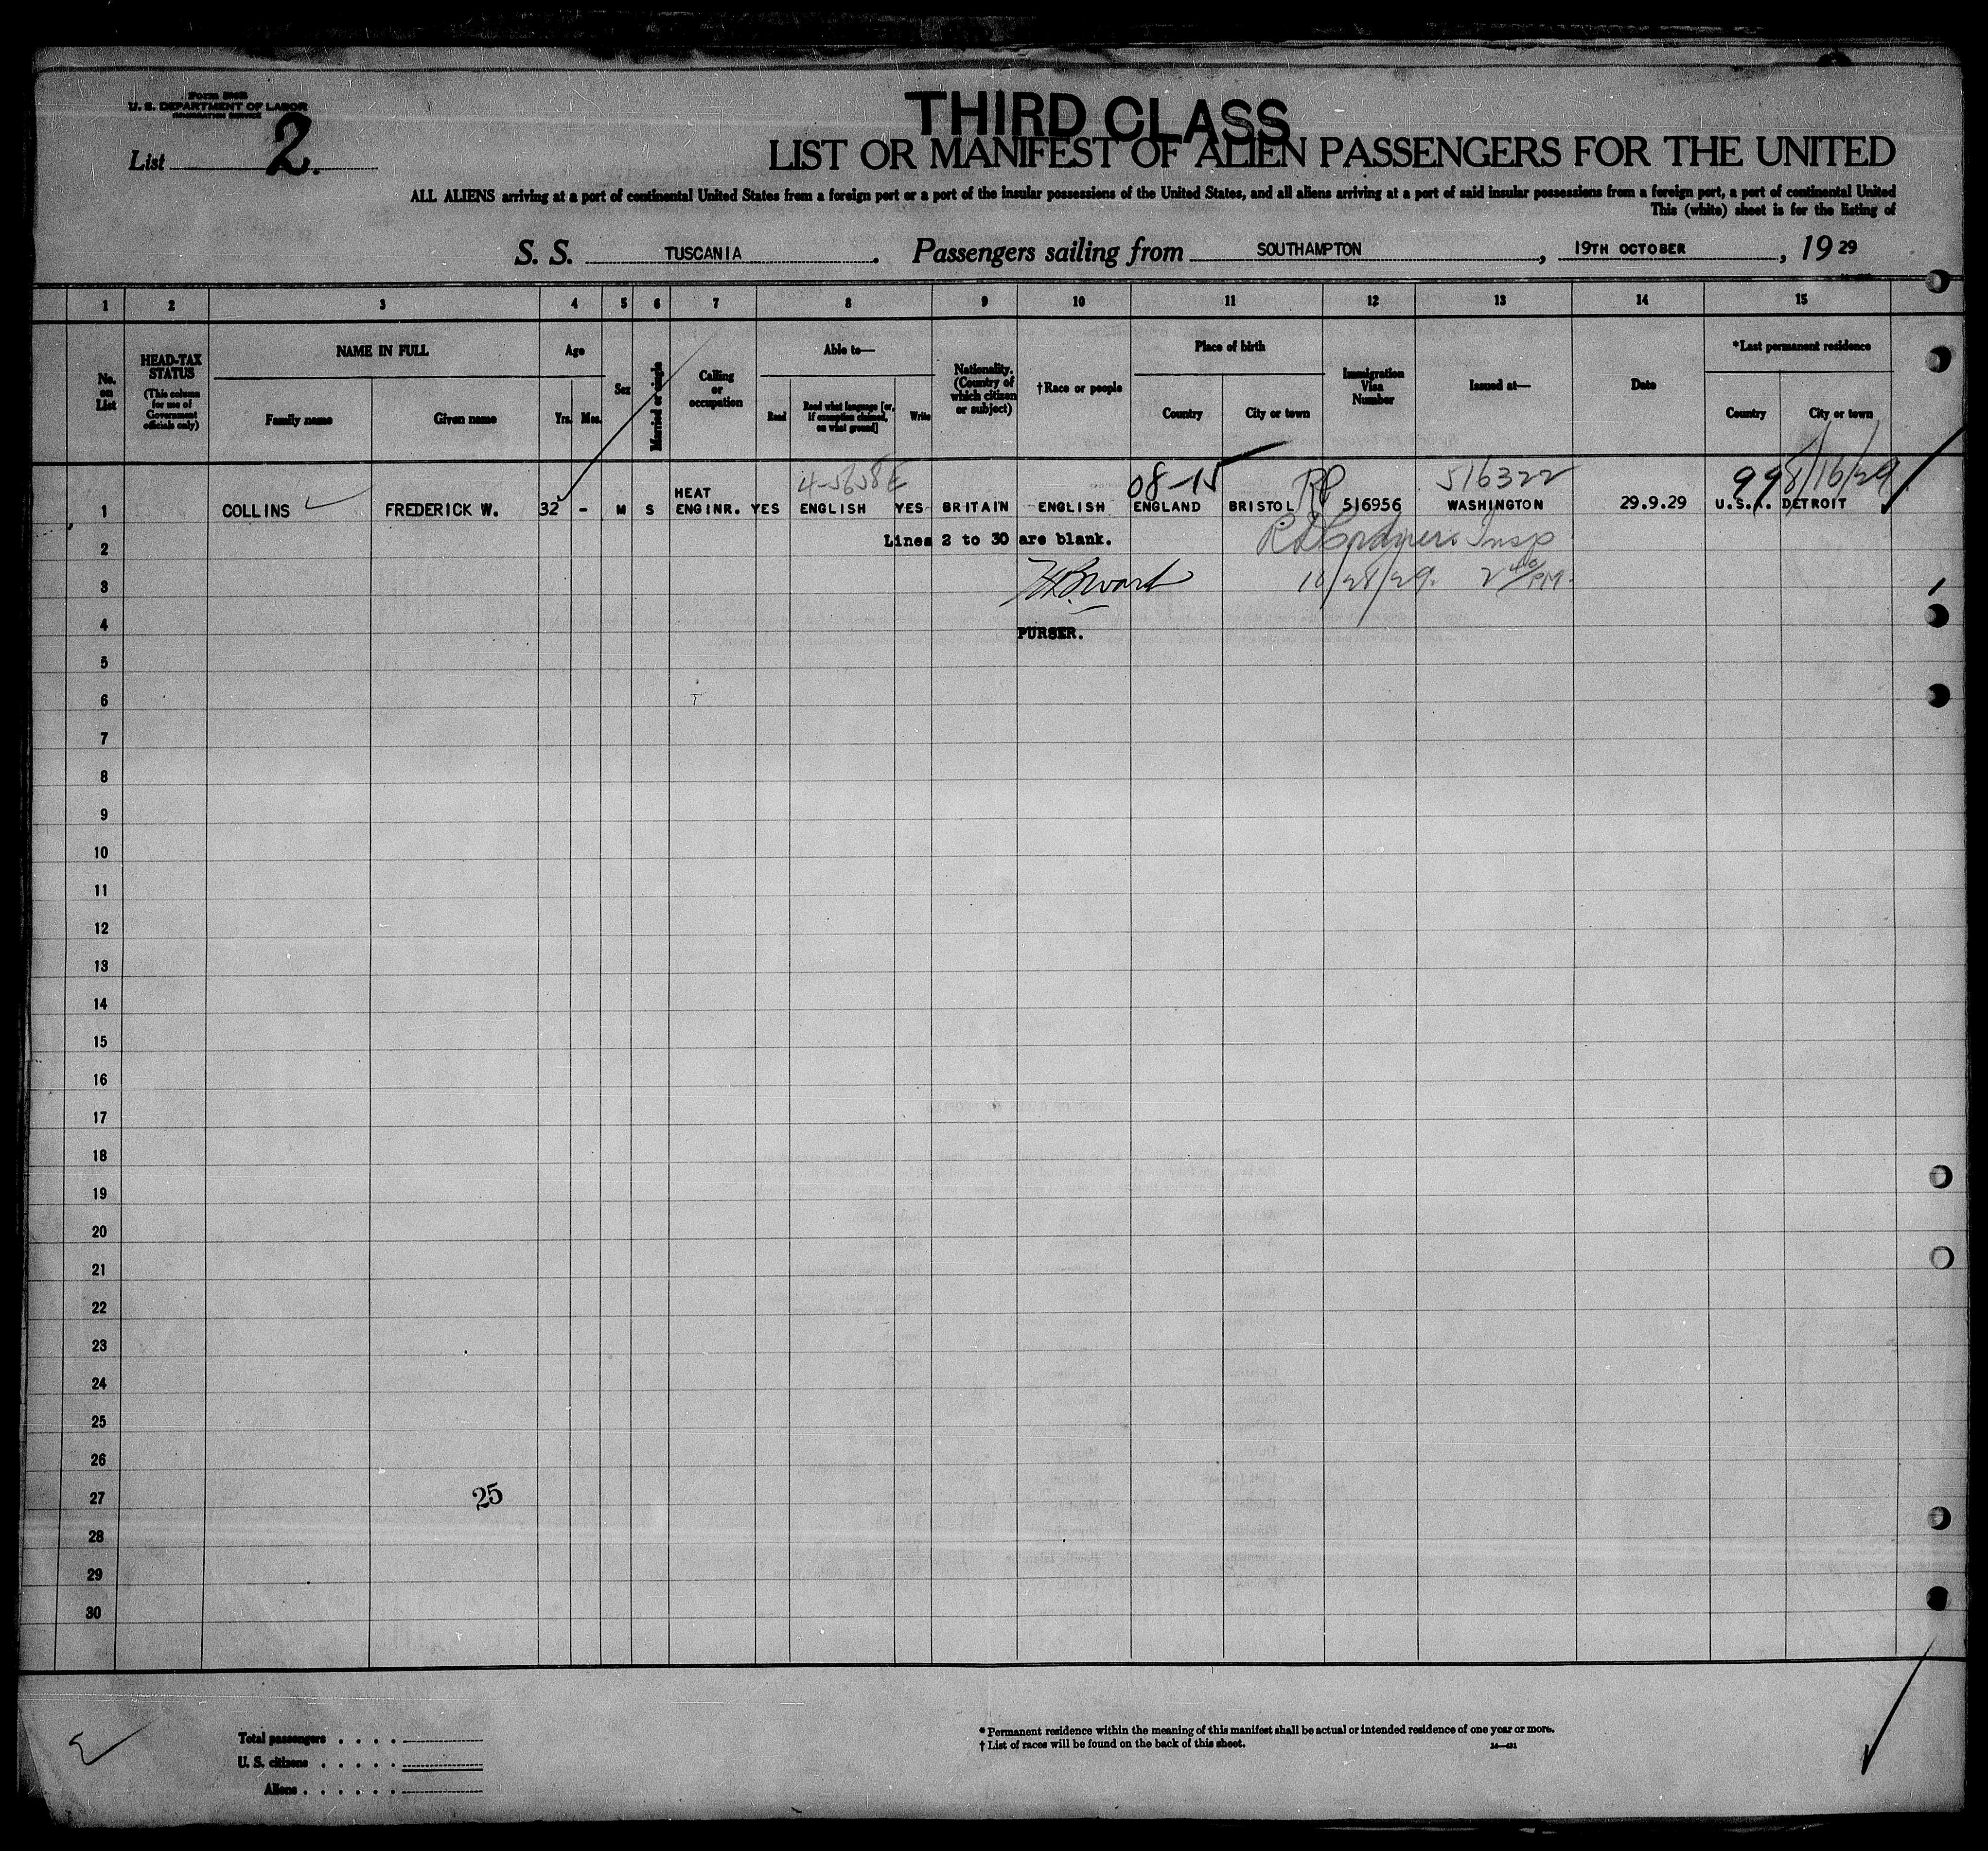 U. S. DEPARTMENT OF LABOR
List 2.
THIRD CLASS
LIST OR MANIFEST OF ALIEN PASSENGERS FOR THE UNITED
ALL ALIENS arriving at a port of continental United States from a foreign port or a port of the insular possessions of the United States, and all aliens arriving at a port of said insular possessions from a foreign port, a port of continental United
This (white) sheet is for the listing of
S. S. TUSCANIA. Passengers sailing from SOUTHAMPTON, 19TH OCTOBER, 1929
1 2 3 4 5 6 7 8 9 10 11 12 13 14 15
No. on List
HEAD-TAX STATUS (This column for use of Government officials only)
NAME IN FULL
Family name Given name
Age
Yrs. Mos.
Sex
Married or single
Calling or occupation
Able to—
Read Read what language [or, if exemption claimed, on what ground] Write
Nationality. (Country of which citizen or subject)
†Race or people
Place of birth
Country City or town
Immigration Visa Number
Issued at—
Date
*Last permanent residence
Country City or town
08-15 516322 99 8/16/29
1 COLLINS FREDERICK W. 32 - M S HEAT ENGINR. YES ENGLISH YES BRITAIN ENGLISH ENGLAND BRISTOL 516956 WASHINGTON 29.9.29 U.S.A. DETROIT
2 Lines 2 to 30 are blank.
3 10/28/29. 2 40 PM.
4 PURSER.
5
6
7
8
9
10
11
12
13
14
15
16
17
18
19
20
21
22
23
24
25
26
27 25
28
29
30
Total passengers . . . .
U. S. citizens . . . . .
Aliens . . . . . .
* Permanent residence within the meaning of this manifest shall be actual or intended residence of one year or more.
† List of races will be found on the back of this sheet.